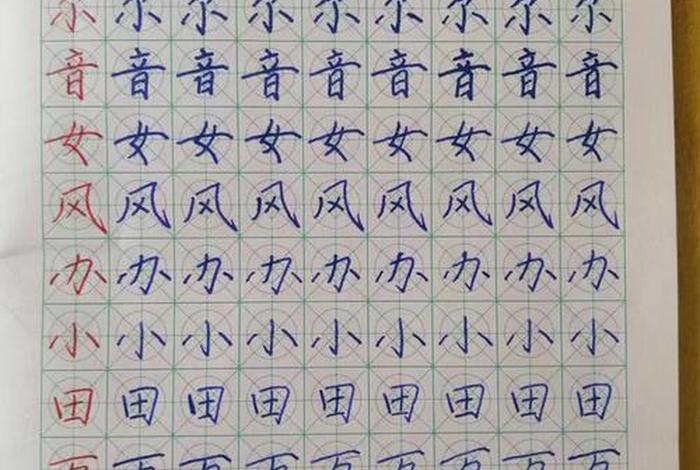 音音音音音音音音音
女女女女女女女女女
风风风风风风风风风
办办办办办办办办办
小小小小小小小小小
田田田田田田田田田